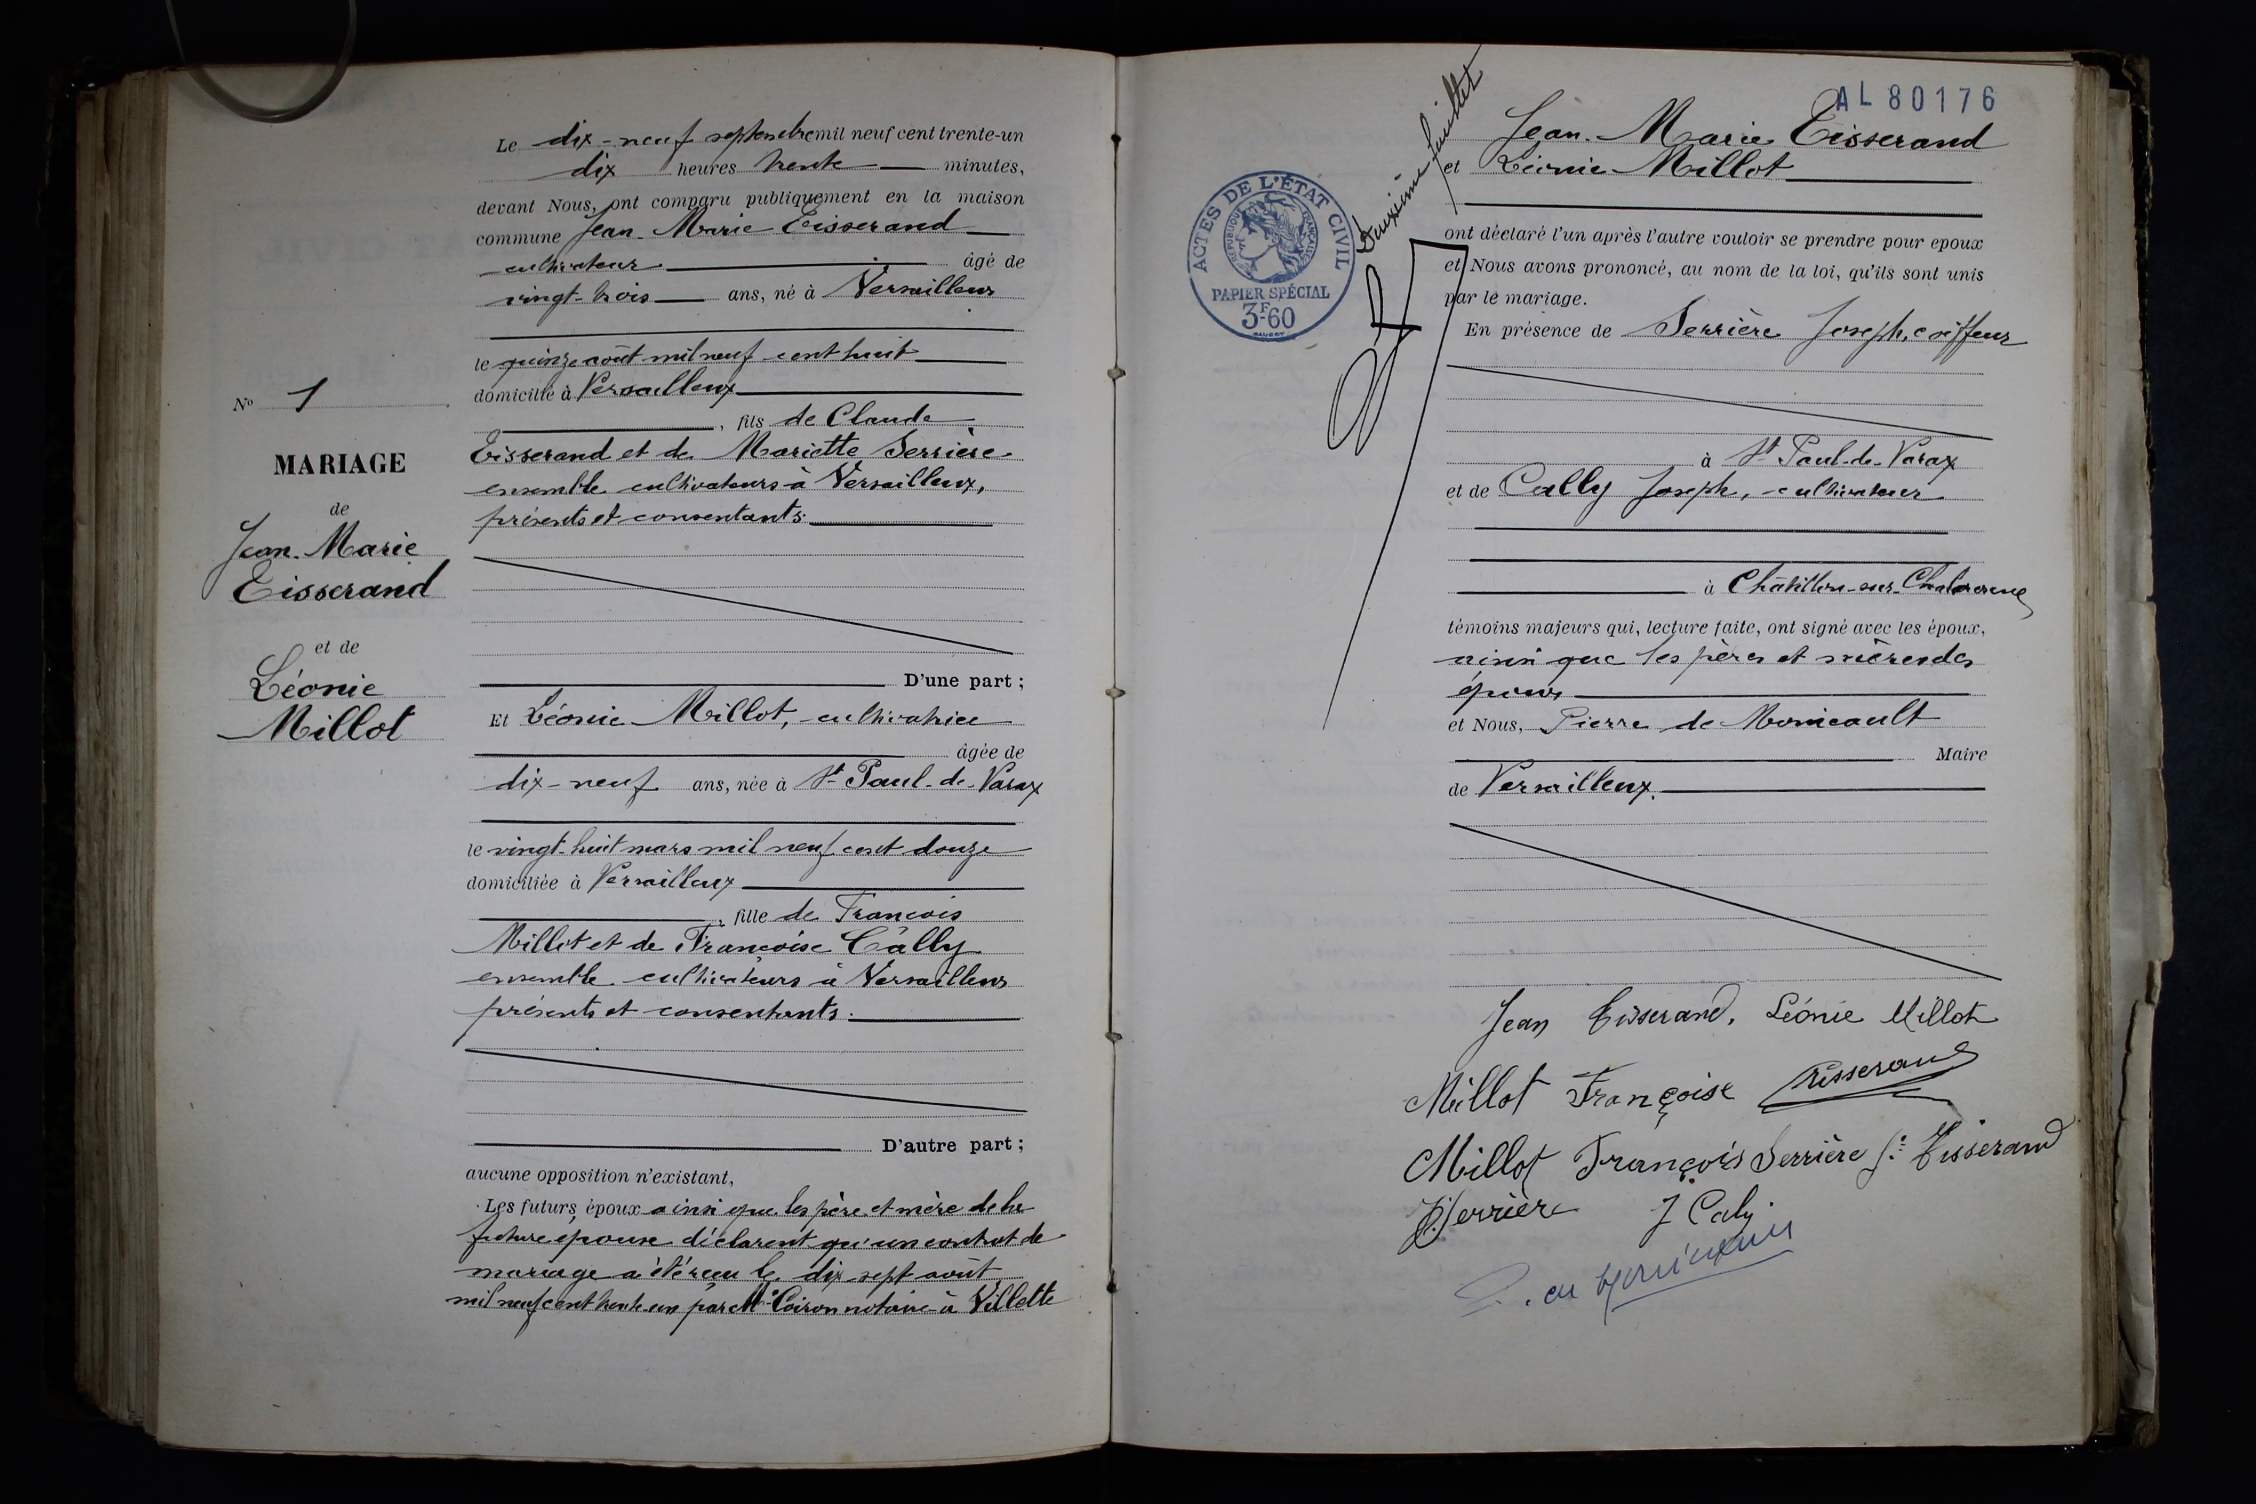 Le dix-neuf septembre mil neuf cent trente-un
dix heures trente minutes,
devant Nous, ont comparu publiquement en la maison
commune Jean-Marie Tisserand
cultivateur âgé de
vingt-trois ans, né à Versailleux
le quinze août mil neuf cent huit
domicilié à Versailleux
, fils de Claude
Tisserand et de Mariette Serrière
ensemble cultivateurs à Versailleux,
présents et consentants.
No 1
MARIAGE
de
Jean-Marie
Tisserand
et de
Léonie
Millot
D'une part ;
Et Léonie Millot, cultivatrice
âgée de
dix-neuf ans, née à St Paul-de-Varax
le vingt-huit mars mil neuf cent douze
domiciliée à Versailleux
, fille de François
Millot et de Françoise Cally
ensemble cultivateurs à Versailleux
présents et consentants.
D'autre part ;
aucune opposition n'existant,
Les futurs époux ainsi que les père et mère de la
future épouse déclarent qu'un contrat de
mariage a été reçu le dix-sept août
mil neuf cent trente-un par Me Coiron notaire à Villette
AL 80176
Deuxième feuillet
ACTES DE L'ÉTAT CIVIL
RÉPUBLIQUE FRANÇAISE
PAPIER SPÉCIAL
3F60
Jean-Marie Tisserand
et Léonie Millot
ont déclaré l'un après l'autre vouloir se prendre pour epoux
et Nous avons prononcé, au nom de la loi, qu'ils sont unis
par le mariage.
En présence de Serrière Joseph, coiffeur
à St Paul-de-Varax
et de Cally Joseph, cultivateur
à Châtillon-sur-Chalaronne
témoins majeurs qui, lecture faite, ont signé avec les époux,
ainsi que les pères et mères des
époux
et Nous, Pierre de Monicault
Maire
de Versailleux.
Jean Tisserand, Léonie Millot
Millot Françoise Tisserand
Millot François Serrière Tisserand
Serrière J Caly